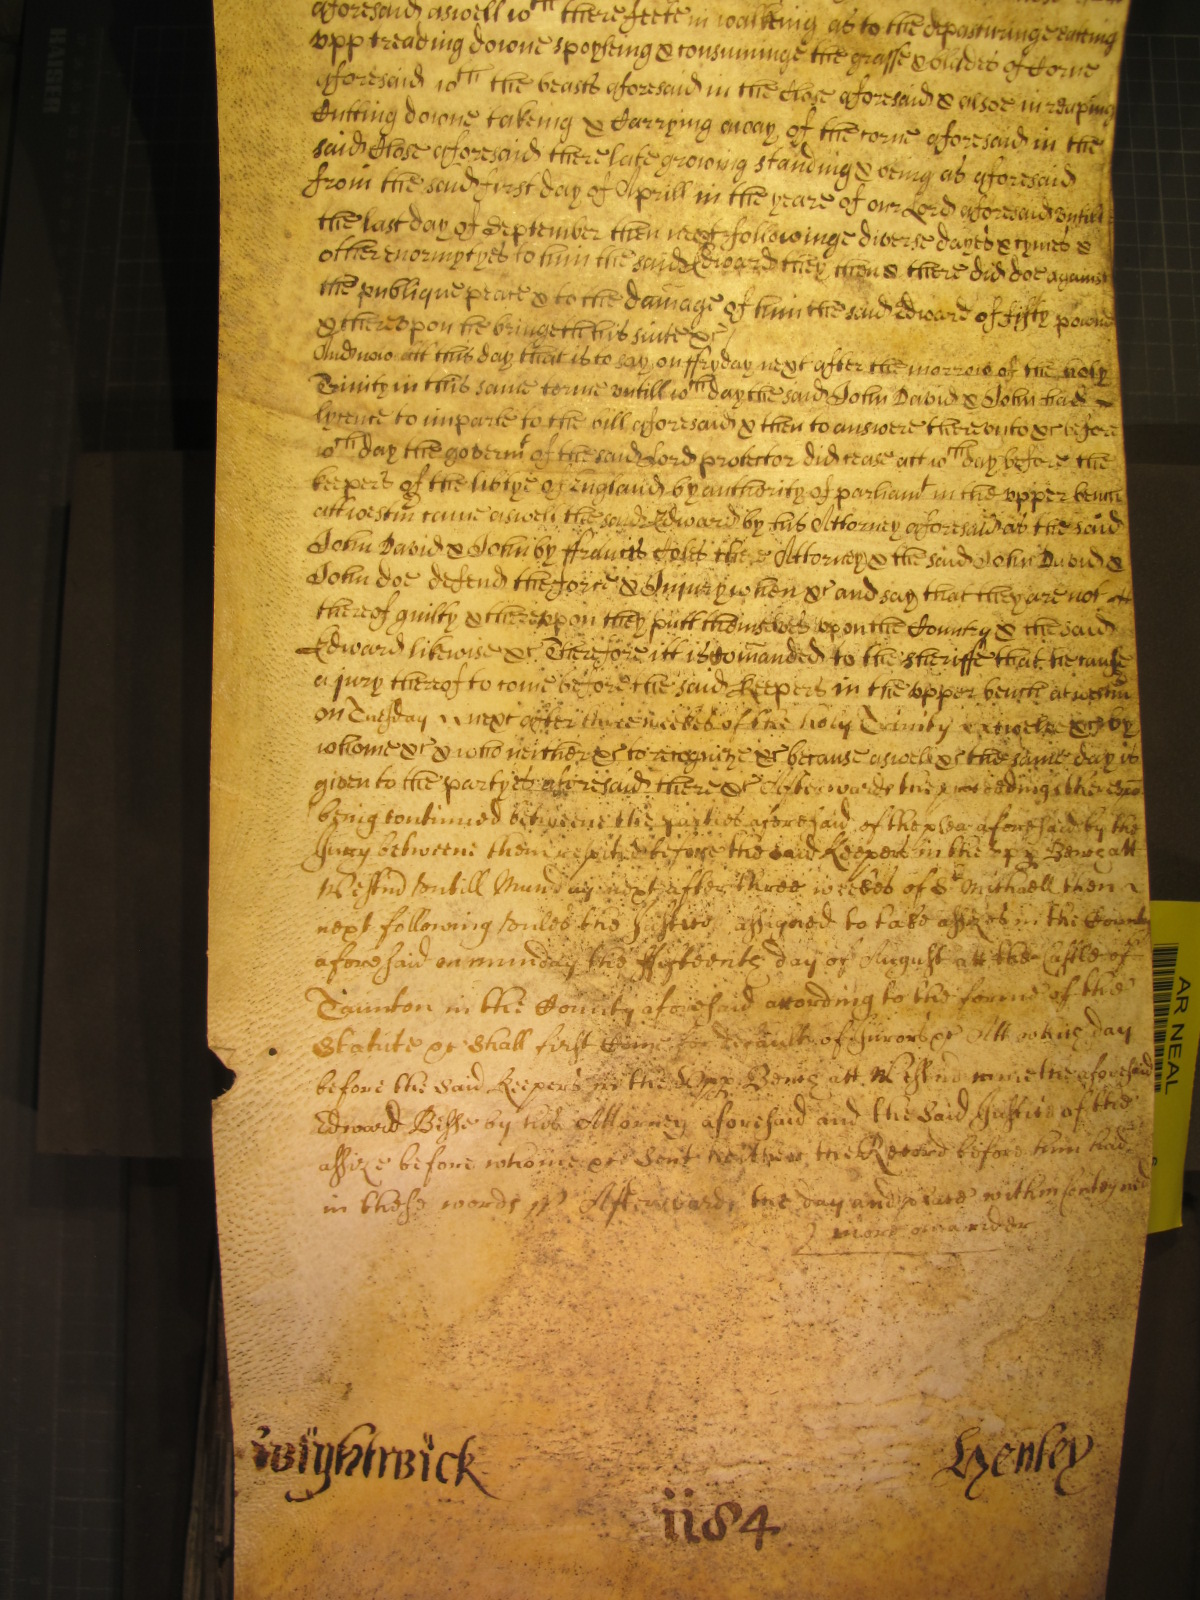 aforesaid aswell wth there feete in walking as to the depasturinge eateing
upp treading downe spoyleing & consuminge the grasse & blades of Corne
aforesaid wth the beasts aforesaid in the Close aforesaid & alsoe in reaping
Cutting downe takeing & Carrying away of the corne aforesaid in the
said Close aforesaid there late growing standing & being as aforesaid
from the said first day of Aprill in the yeare of our Lord aforesaid untill
the last day of September then next followinge diverse dayes & tymes &
other enormytyes to him the said Edward they then & there did doe against
the publique peace & to the damage of him the said Edward of fifty pound
& thereupon he bringeth his suite &c
And now att this day that is to say on ffryday next after the morrow of the holy
Trinity in this same terme untill wch day the said John David & John had
lycence to imparle to the bill aforesaid & then to answere thereunto &c before
wch day the governmt of the said Lord protector did cease att wch day before the
keepers of the libtye of England by authority of parliamt in the upper bench
att westm came aswell the said Edward by his Attorney aforesaid as the said
John David & John by ffrancis Coles there Attorney & the said John David &
John doe defend the force & Injury when &c and say that they are not
thereof guilty & thereupon they putt themselves upon the Country & the said
Edward likewise &c Therefore itt is comanded to the sheriffe that he cause
a jury thereof to come before the said Keepers in the upper bench at westm
on Tuesday next after three weekes of the holy Trinity &c by
whome &c & who neither &c to recognize &c because aswell &c the same day is
given to the partyes aforesaid there &c Afterwards the proceedings thereupon
being continued betweene the parties aforesaid of the plea aforesaid by the
Jury betweene them respited before the said Keepers in the upp Bench att
Westmd untill Munday next after three weekes of St Michaell then
next following unles the Justices assigned to take assizes in the County
aforesaid on munday the ffifteenth day of August att the Castle of
Taunton in the County aforesaid according to the forme of the
Statute &c shall first Come for default of Jurors &c Att which day
before the said Keepers in the Upp Bench att Westmd came the aforesaid
Edward Bisse by his Attorney aforesaid and the said Justices of the
assize before whome &c sent hether the Record before him had
in these words Afterwards the day and place within conteyned
more on a rider
Wightwick
Henley
1184
AR NEAL
KAISER